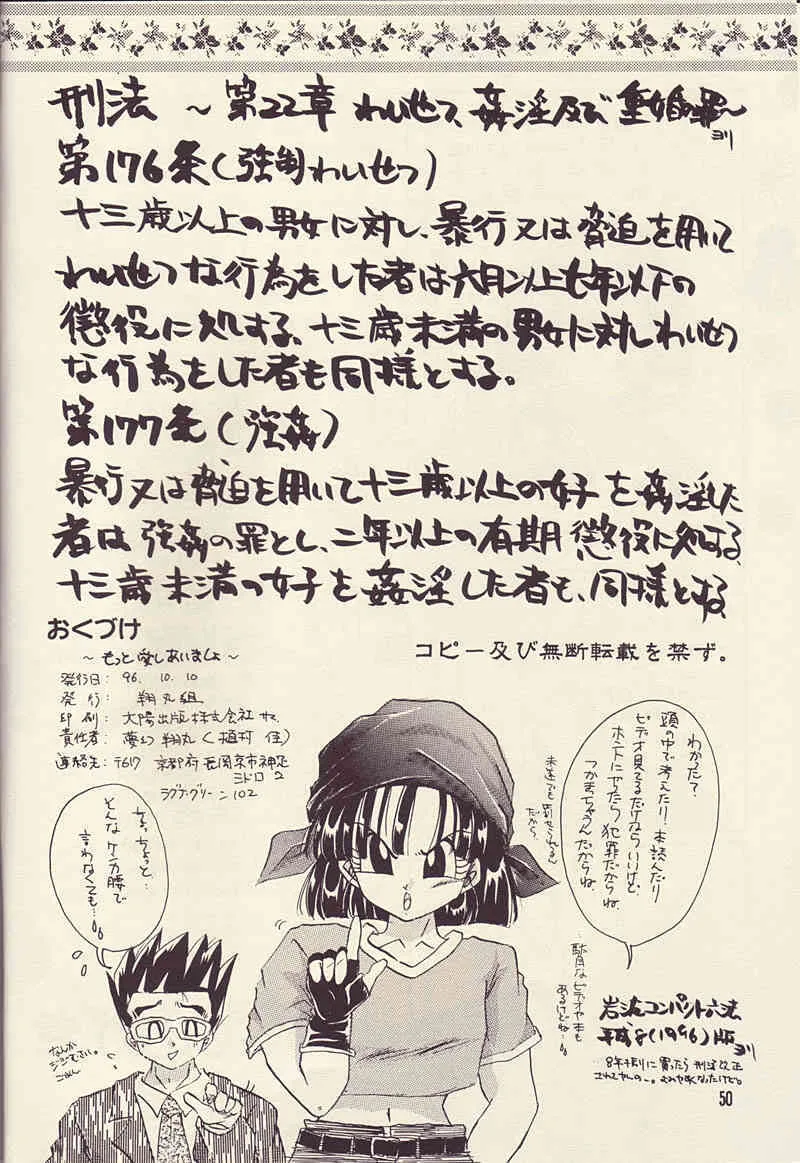 刑法 〜第22章 わいせつ、姦淫及び重婚の罪〜ヨリ
第176条(強制わいせつ)
十三歳以上の男女に対し、暴行又は脅迫を用いて
わいせつな行為をした者は六月以上七年以下の
懲役に処する、十三歳未満の男女に対しわいせつ
な行為をした者も同様とする。
第177条(強姦)
暴行又は脅迫を用いて十三歳以上の女子を姦淫した
者は強姦の罪とし、二年以上の有期懲役に処する、
十三歳未満の女子を姦淫した者も、同様とする
おくづけ
〜もっと愛しあいましょ〜
発行日: 96. 10. 10
発行: 翔丸組
印刷: 大陽出版株式会社サマ
責任者: 夢幻翔丸(植村 佳)
連絡先: 〒617 京都府長岡京市神足
ミドロ2
ラグナ・グリーン102
コピー及び無断転載を禁ず。
わかった?
頭の中で考えたり、本読んだり
ビデオ見てるだけならいいけど、
ホントにやったら犯罪だからね
つかまっちゃうんだからね
未遂でも罰せられる
だから。
ちょ、ちょっと…
そんなケンカ腰で
言わなくても…
なビデオや本も
あるけどね…
なんか
ごはん
岩波コンパクト六法
平成8(1996)版ヨリ
8年 に買ったら刑法改正
されてやんの〜。 なったけど。
50